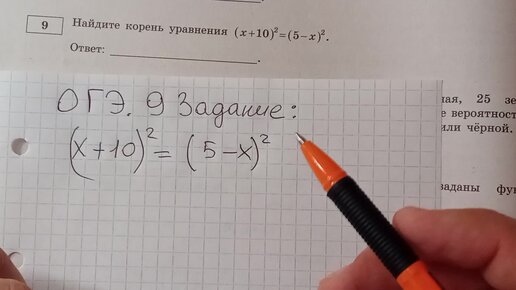 9 Найдите корень уравнения (x+10)²=(5−x)².
Ответ:
ная, 25 зе
е вероятност
или чёрной.
заданы фу
ОГЭ. 9 Задание:
(x+10)²=(5−x)²